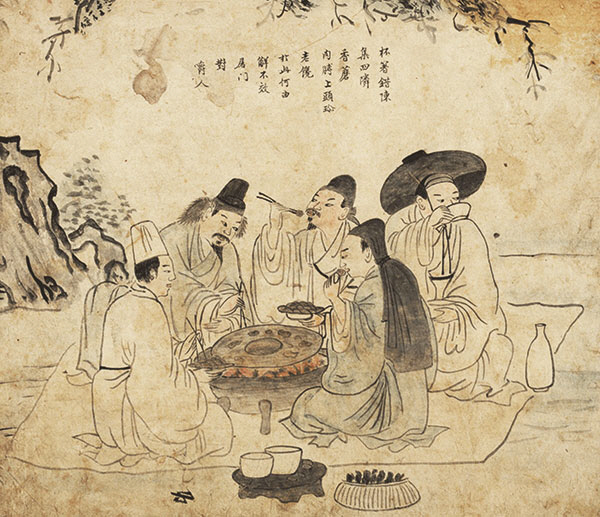 杯箸錯陳
集四隣
香蘑
肉膊上頭珍
老饞
於此何由
解不效
屠門
對
嚼人